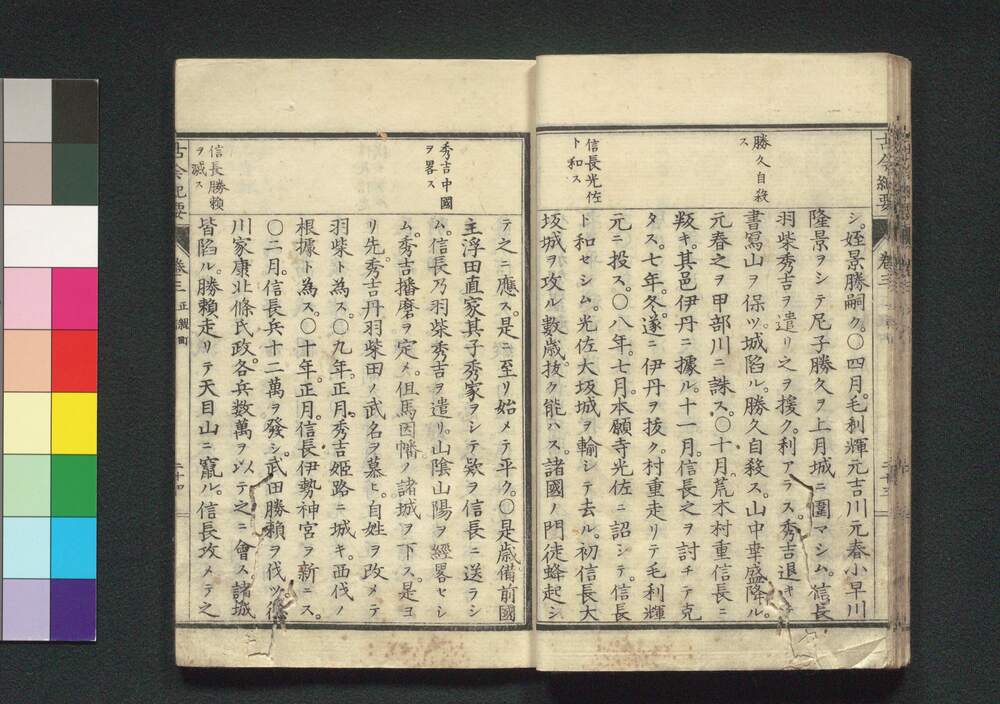 古今紀要
卷三
二十三
勝久自殺
ス
信長光佐
ト和ス
シ。姪景勝嗣ク。〇四月。毛利輝元吉川元春小早川
隆景ヲシテ尼子勝久ヲ上月城ニ圍マシム。信長
羽柴秀吉ヲ遣リ之ヲ援ク。利アラス。秀吉退キ
書寫山ヲ保ツ。城陷ル。勝久自殺ス。山中幸盛降ル。
元春之ヲ甲部川ニ誅ス。〇十月。荒木村重信長ニ
叛キ。其邑伊丹ニ據ル。十一月。信長之ヲ討チテ克
タス。七年。冬。遂ニ伊丹ヲ拔ク。村重走リテ毛利輝
元ニ投ス。〇八年。七月。本願寺光佐ニ詔シテ。信長
ト和セシム。光佐大坂城ヲ輸シテ去ル。初信長大
坂城ヲ攻ル數歲。拔ク能ハス。諸國ノ門徒蜂起シ
秀吉中國
ヲ畧ス
信長勝賴
ヲ滅ス
テ之ニ應ス。是ニ至リ始メテ平ク。〇是歲。備前國
主浮田直家其子秀家ヲシテ欵ヲ信長ニ送ラシ
ム。信長乃羽柴秀吉ヲ遣リ。山陰山陽ヲ經畧セシ
ム。秀吉播磨ヲ定メ。但馬因幡ノ諸城ヲ下ス。是ヨ
リ先。秀吉丹羽柴田ノ武名ヲ慕ヒ。自姓ヲ改メテ
羽柴ト為ス。〇九年。正月。秀吉姬路ニ城キ。西伐ノ
根據ト為ス。〇十年。正月。信長伊勢神宮ヲ新ニス。
〇二月。信長兵十二萬ヲ發シ。武田勝賴ヲ伐ツ。德
川家康北條氏政。各兵數萬ヲ以テ之ニ會ス。諸城
皆陷ル。勝賴走リテ天目山ニ竄ル。信長攻メテ之
古今紀要
卷三
正親町
二十四